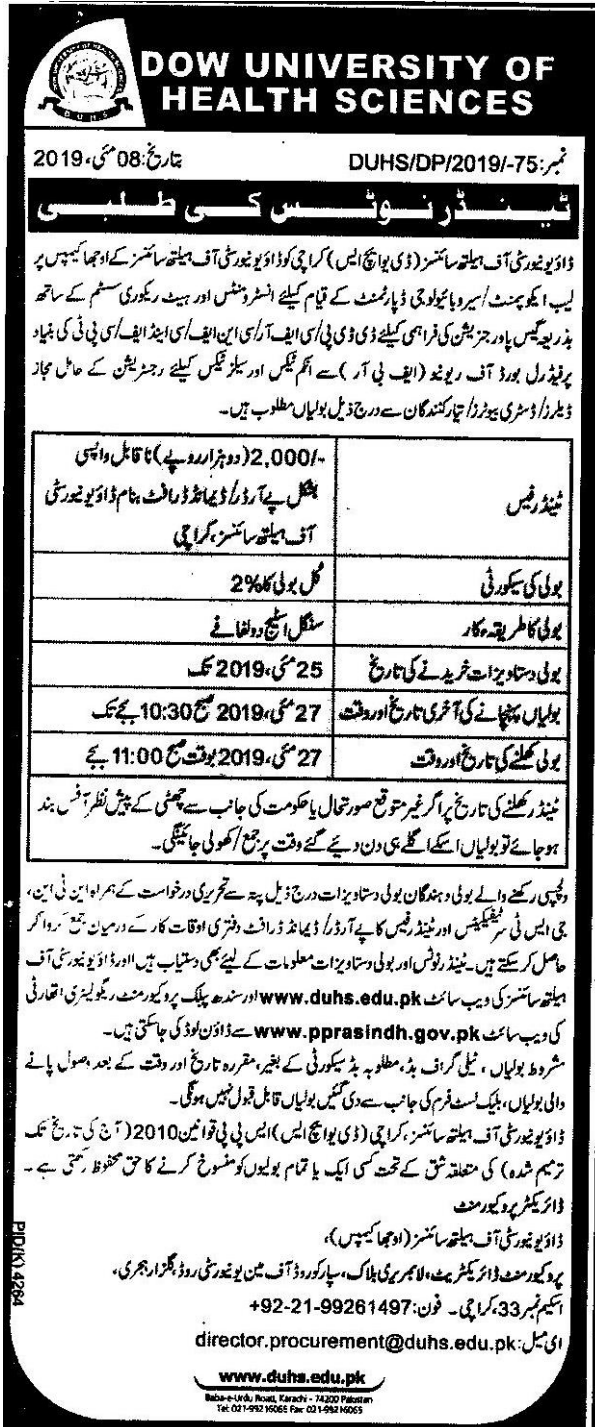 DOW UNIVERSITY OF
HEALTH SCIENCES
DUHS
نمبر: DUHS/DP/2019/-75 بتاریخ: 08 مئی، 2019
ٹینڈر نوٹس کی طلبی
ڈاؤ یونیورسٹی آف ہیلتھ سائنسز (ڈی یو ایچ ایس) کراچی کو ڈاؤ یونیورسٹی آف ہیلتھ سائنسز کے اوجھا کیمپس پر
لیب ایکوپمنٹ/سیروبائیولوجی ڈپارٹمنٹ کے قیام کیلئے انسٹرومنٹس اور ہیٹ ریکوری سسٹم کے ساتھ
بذریعہ گیس پاور جنریشن کی فراہمی کیلئے ڈی ڈی پی/سی ایف آر/سی این ایف/سی اینڈ ایف/سی پی ٹی کی بنیاد
پر فیڈرل بورڈ آف ریونیو (ایف بی آر) سے انکم ٹیکس اور سیلز ٹیکس کیلئے رجسٹریشن کے حامل مجاز
ڈیلرز/ڈسٹری بیوٹرز/تیار کنندگان سے درج ذیل بولیاں مطلوب ہیں۔
ٹینڈر فیس
2,000/- (دو ہزار روپے) ناقابل واپسی
بشکل پے آرڈر/ڈیمانڈ ڈرافٹ بنام ڈاؤ یونیورسٹی
آف ہیلتھ سائنسز، کراچی
بولی کی سیکورٹی کُل بولی کا 2%
بولی کا طریقہ کار سنگل اسٹیج دو لفافے
بولی دستاویزات خریدنے کی تاریخ 25 مئی، 2019 تک
بولیاں پہنچانے کی آخری تاریخ اور وقت 27 مئی، 2019 صبح 10:30 بجے تک
بولی کھلنے کی تاریخ اور وقت 27 مئی، 2019 بوقت صبح 11:00 بجے
ٹینڈر کھلنے کی تاریخ پر اگر غیر متوقع صورتحال یا حکومت کی جانب سے چھٹی کے پیش نظر آفس بند
ہو جائے تو بولیاں اسکے اگلے ہی دن دیئے گئے وقت پر جمع/کھولی جائینگی۔
دلچسپی رکھنے والے بولی دہندگان بولی دستاویزات درج ذیل پتہ سے تحریری درخواست کے ہمراہ این ٹی این،
جی ایس ٹی سرٹیفکیٹس اور ٹینڈر فیس کا پے آرڈر/ڈیمانڈ ڈرافٹ دفتری اوقات کار کے درمیان جمع کروا کر
حاصل کر سکتے ہیں۔ ٹینڈر نوٹس اور بولی دستاویزات معلومات کے لیئے بھی دستیاب ہیں اور ڈاؤ یونیورسٹی آف
ہیلتھ سائنسز کی ویب سائٹ www.duhs.edu.pk اور سندھ پبلک پروکیورمنٹ ریگولیٹری اتھارٹی
کی ویب سائٹ www.pprasindh.gov.pk سے ڈاؤن لوڈ کی جا سکتی ہیں۔
مشروط بولیاں، ٹیلی گراف بڈ، مطلوبہ بڈ سیکورٹی کے بغیر، مقررہ تاریخ اور وقت کے بعد وصول پانے
والی بولیاں، بلیک لسٹ فرم کی جانب سے دی گئیں بولیاں قابل قبول نہیں ہونگی۔
ڈاؤ یونیورسٹی آف ہیلتھ سائنسز، کراچی (ڈی یو ایچ ایس) ایس پی پی قوانین 2010 (آج کی تاریخ تک
ترمیم شدہ) کی متعلقہ شق کے تحت کسی ایک یا تمام بولیوں کو منسوخ کرنے کا حق محفوظ رکھتی ہے۔
ڈائریکٹر پروکیورمنٹ
ڈاؤ یونیورسٹی آف ہیلتھ سائنسز (اوجھا کیمپس)،
پروکیورمنٹ ڈائریکٹریٹ، لائبریری بلاک، سپارکو روڈ آف مین یونیورسٹی روڈ، گلزار ہجری،
اسکیم نمبر 33، کراچی۔ فون: +92-21-99261497
ای میل: director.procurement@duhs.edu.pk
PID(K) 4264
www.duhs.edu.pk
Baba-e-Urdu Road, Karachi - 74200 Pakistan
Tel: 021-99216065 Fax: 021-99216065